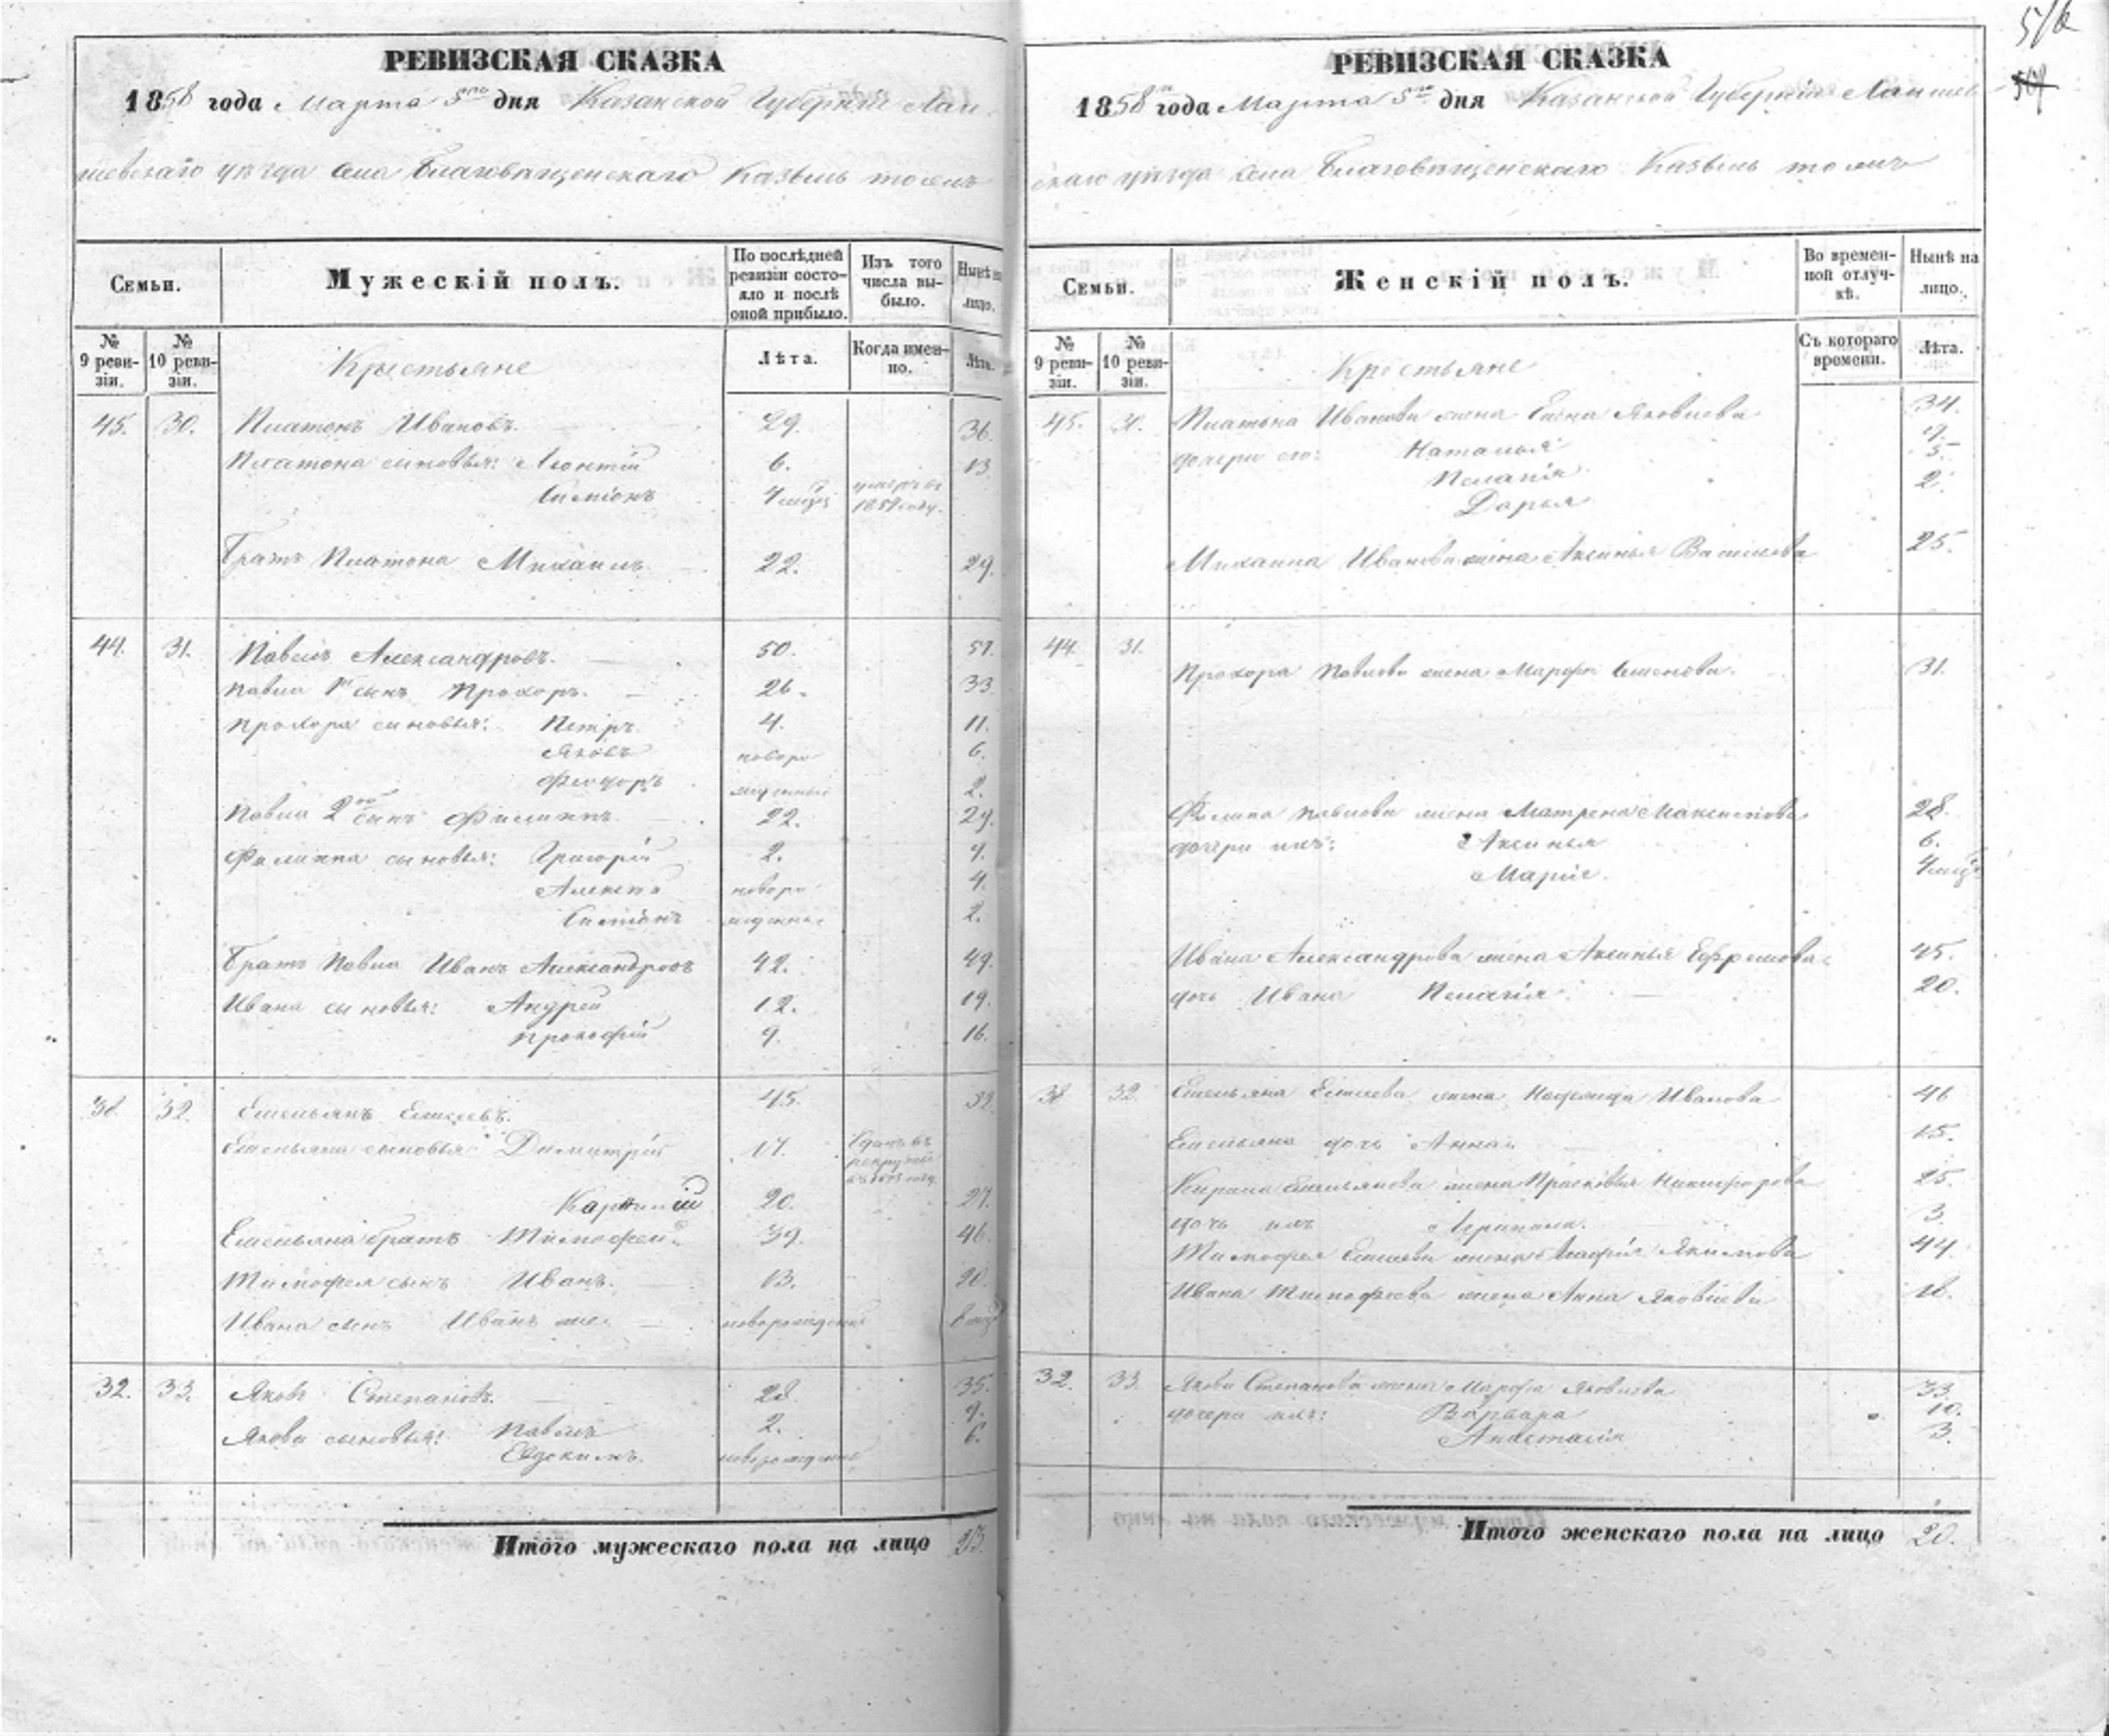 РЕВИЗСКАЯ СКАЗКА
1858 года Марта 5го дня Казанской Губерніи Лаи-
шевскаго уѣзда села Благовѣщенскаго Казыль тожъ
Семьи.
Мужескій полъ.
По послѣдней ревизіи состояло и послѣ оной прибыло.
Изъ того числа выбыло.
Нынѣ на лицо.
№ 9 ревизіи.
№ 10 ревизіи.
Крестьяне
Лѣта.
Когда именно.
Лѣта.
45. 30. Платонъ Ивановъ. 29. 36.
Платона сыновья: Леонтій 6. 13.
Симіонъ умеръ въ
Братъ Платона Михаилъ 22. 29.
44. 31. Павелъ Александровъ. 50. 57.
Павла 1й сынъ Прохоръ. 26. 33.
Прохора сыновья: Петръ 4. 11.
Яковъ новоро- 6.
Феодоръ жденные 2.
Павла 2ой сынъ Филиппъ. 22. 29.
Филиппа сыновья: Григорій 2. 9.
Алексѣй новоро- 4.
Симіонъ жденные 2.
Братъ Павла Иванъ Александровъ 42. 49.
Ивана сыновья: Андрей 12. 19.
Прокофій 9. 16.
38. 32. Емельянъ Елисеевъ. 45.
Емельяна сыновья Димитрій 17. Сданъ въ рекруты
20. 27.
Емельяна братъ Тимофей 39. 46.
Тимофея сынъ Иванъ. 13. 20.
Ивана сынъ Иванъ же новорожденъ
32. 33. Яковъ Степановъ. 28. 35.
Якова сыновья: Павелъ 2. 9.
Евдокимъ. новорожденный 6.
Итого мужескаго пола на лицо 23.
РЕВИЗСКАЯ СКАЗКА
1858 года Марта 5го дня Казанской Губерніи Лаишев-
скаго уѣзда села Благовѣщенскаго Казыль тожъ
Семьи.
Женскій полъ.
Во временной отлучкѣ.
Нынѣ на лицо.
№ 9 ревизіи.
№ 10 ревизіи.
Крестьяне
Съ котораго времени.
Лѣта.
45. 30. Платона Иванова жена Елена Яковлева 34.
дочери его: Наталья 9.
Пелагія 5.
Дарья 2.
Михаила Иванова жена Аксинья Васильева 25.
44. 31.
Прохора Павлова жена Марфа Семенова. 31.
Филипа Павлова жена Матрена Максимова 28.
дочери ихъ: Аксинья 6.
Марія.
Ивана Александрова жена Аксинья Ефремова 45.
дочь Ивана Пелагія 20.
38. 32. Емельяна Елисеева жена Ивановa 46
Емельяна дочь Анна 15.
Емельянова жена Прасковья Никифорова 25.
дочь ихъ 3.
Тимофея Елисеева жена Агафія Якимова 44.
Ивана Тимофеева жена Анна Яковлева 18.
32. 33. Якова Степанова жена Марфа Яковлева 33.
дочери ихъ: Варвара 10.
Анастасія 3.
Итого женскаго пола на лицо 20.